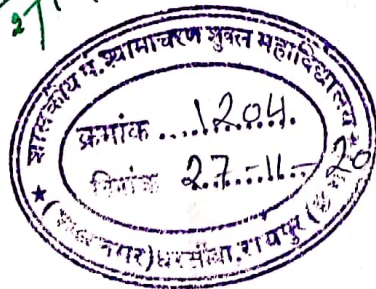 शासकीय पं. श्यामाचरण शुक्ल महाविद्यालय
क्रमांक ....1204....
दिनांक 27-11-20
धरसींवा, रायपुर